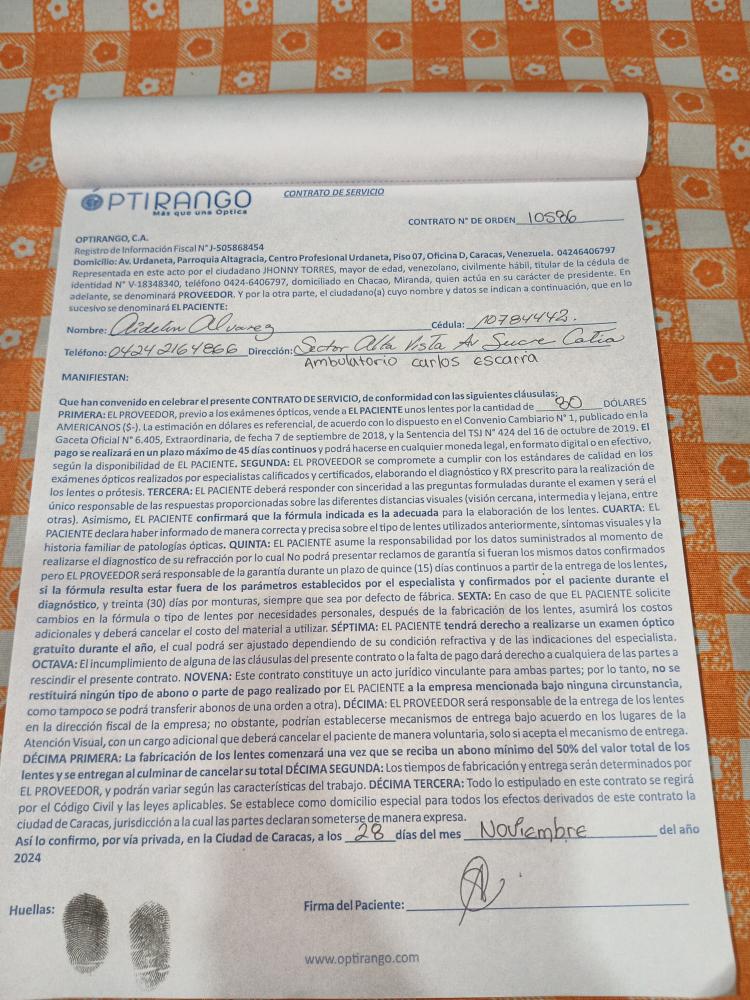 ÓPTIRANGO
Más que una Óptica
CONTRATO DE SERVICIO
CONTRATO N° DE ORDEN 10586
OPTIRANGO, C.A.
Registro de Información Fiscal N° J-505868454
Domicilio: Av. Urdaneta, Parroquia Altagracia, Centro Profesional Urdaneta, Piso 07, Oficina D, Caracas, Venezuela. 04246406797
Representada en este acto por el ciudadano JHONNY TORRES, mayor de edad, venezolano, civilmente hábil, titular de la cédula de
identidad N° V-18348340, teléfono 0424-6406797, domiciliado en Chacao, Miranda, quien actúa en su carácter de presidente. En
adelante, se denominará PROVEEDOR. Y por la otra parte, el ciudadano(a) cuyo nombre y datos se indican a continuación, que en lo
sucesivo se denominará EL PACIENTE:
Nombre: Aidelin Alvarez Cédula: 10784442.
Teléfono: 04242164866 Dirección: Sector Alta Vista Av Sucre Catia
Ambulatorio carlos escarra
MANIFIESTAN:
Que han convenido en celebrar el presente CONTRATO DE SERVICIO, de conformidad con las siguientes cláusulas:
PRIMERA: EL PROVEEDOR, previo a los exámenes ópticos, vende a EL PACIENTE unos lentes por la cantidad de 80 DÓLARES
AMERICANOS ($-). La estimación en dólares es referencial, de acuerdo con lo dispuesto en el Convenio Cambiario N° 1, publicado en la
Gaceta Oficial N° 6.405, Extraordinaria, de fecha 7 de septiembre de 2018, y la Sentencia del TSJ N° 424 del 16 de octubre de 2019. El
pago se realizará en un plazo máximo de 45 días continuos y podrá hacerse en cualquier moneda legal, en formato digital o en efectivo,
según la disponibilidad de EL PACIENTE. SEGUNDA: EL PROVEEDOR se compromete a cumplir con los estándares de calidad en los
exámenes ópticos realizados por especialistas calificados y certificados, elaborando el diagnóstico y RX prescrito para la realización de
los lentes o prótesis. TERCERA: EL PACIENTE deberá responder con sinceridad a las preguntas formuladas durante el examen y será el
único responsable de las respuestas proporcionadas sobre las diferentes distancias visuales (visión cercana, intermedia y lejana, entre
otras). Asimismo, EL PACIENTE confirmará que la fórmula indicada es la adecuada para la elaboración de los lentes. CUARTA: EL
PACIENTE declara haber informado de manera correcta y precisa sobre el tipo de lentes utilizados anteriormente, síntomas visuales y la
historia familiar de patologías ópticas. QUINTA: EL PACIENTE asume la responsabilidad por los datos suministrados al momento de
realizarse el diagnostico de su refracción por lo cual No podrá presentar reclamos de garantía si fueran los mismos datos confirmados
pero EL PROVEEDOR será responsable de la garantía durante un plazo de quince (15) días continuos a partir de la entrega de los lentes,
si la fórmula resulta estar fuera de los parámetros establecidos por el especialista y confirmados por el paciente durante el
diagnóstico, y treinta (30) días por monturas, siempre que sea por defecto de fábrica. SEXTA: En caso de que EL PACIENTE solicite
cambios en la fórmula o tipo de lentes por necesidades personales, después de la fabricación de los lentes, asumirá los costos
adicionales y deberá cancelar el costo del material a utilizar. SÉPTIMA: EL PACIENTE tendrá derecho a realizarse un examen óptico
gratuito durante el año, el cual podrá ser ajustado dependiendo de su condición refractiva y de las indicaciones del especialista.
OCTAVA: El incumplimiento de alguna de las cláusulas del presente contrato o la falta de pago dará derecho a cualquiera de las partes a
rescindir el presente contrato. NOVENA: Este contrato constituye un acto jurídico vinculante para ambas partes; por lo tanto, no se
restituirá ningún tipo de abono o parte de pago realizado por EL PACIENTE a la empresa mencionada bajo ninguna circunstancia,
como tampoco se podrá transferir abonos de una orden a otra). DÉCIMA: EL PROVEEDOR será responsable de la entrega de los lentes
en la dirección fiscal de la empresa; no obstante, podrían establecerse mecanismos de entrega bajo acuerdo en los lugares de la
Atención Visual, con un cargo adicional que deberá cancelar el paciente de manera voluntaria, solo si acepta el mecanismo de entrega.
DÉCIMA PRIMERA: La fabricación de los lentes comenzará una vez que se reciba un abono mínimo del 50% del valor total de los
lentes y se entregan al culminar de cancelar su total DÉCIMA SEGUNDA: Los tiempos de fabricación y entrega serán determinados por
EL PROVEEDOR, y podrán variar según las características del trabajo. DÉCIMA TERCERA: Todo lo estipulado en este contrato se regirá
por el Código Civil y las leyes aplicables. Se establece como domicilio especial para todos los efectos derivados de este contrato la
ciudad de Caracas, jurisdicción a la cual las partes declaran someterse de manera expresa.
Así lo confirmo, por vía privada, en la Ciudad de Caracas, a los 28 días del mes Noviembre del año
2024
Huellas:
Firma del Paciente:
www.optirango.com